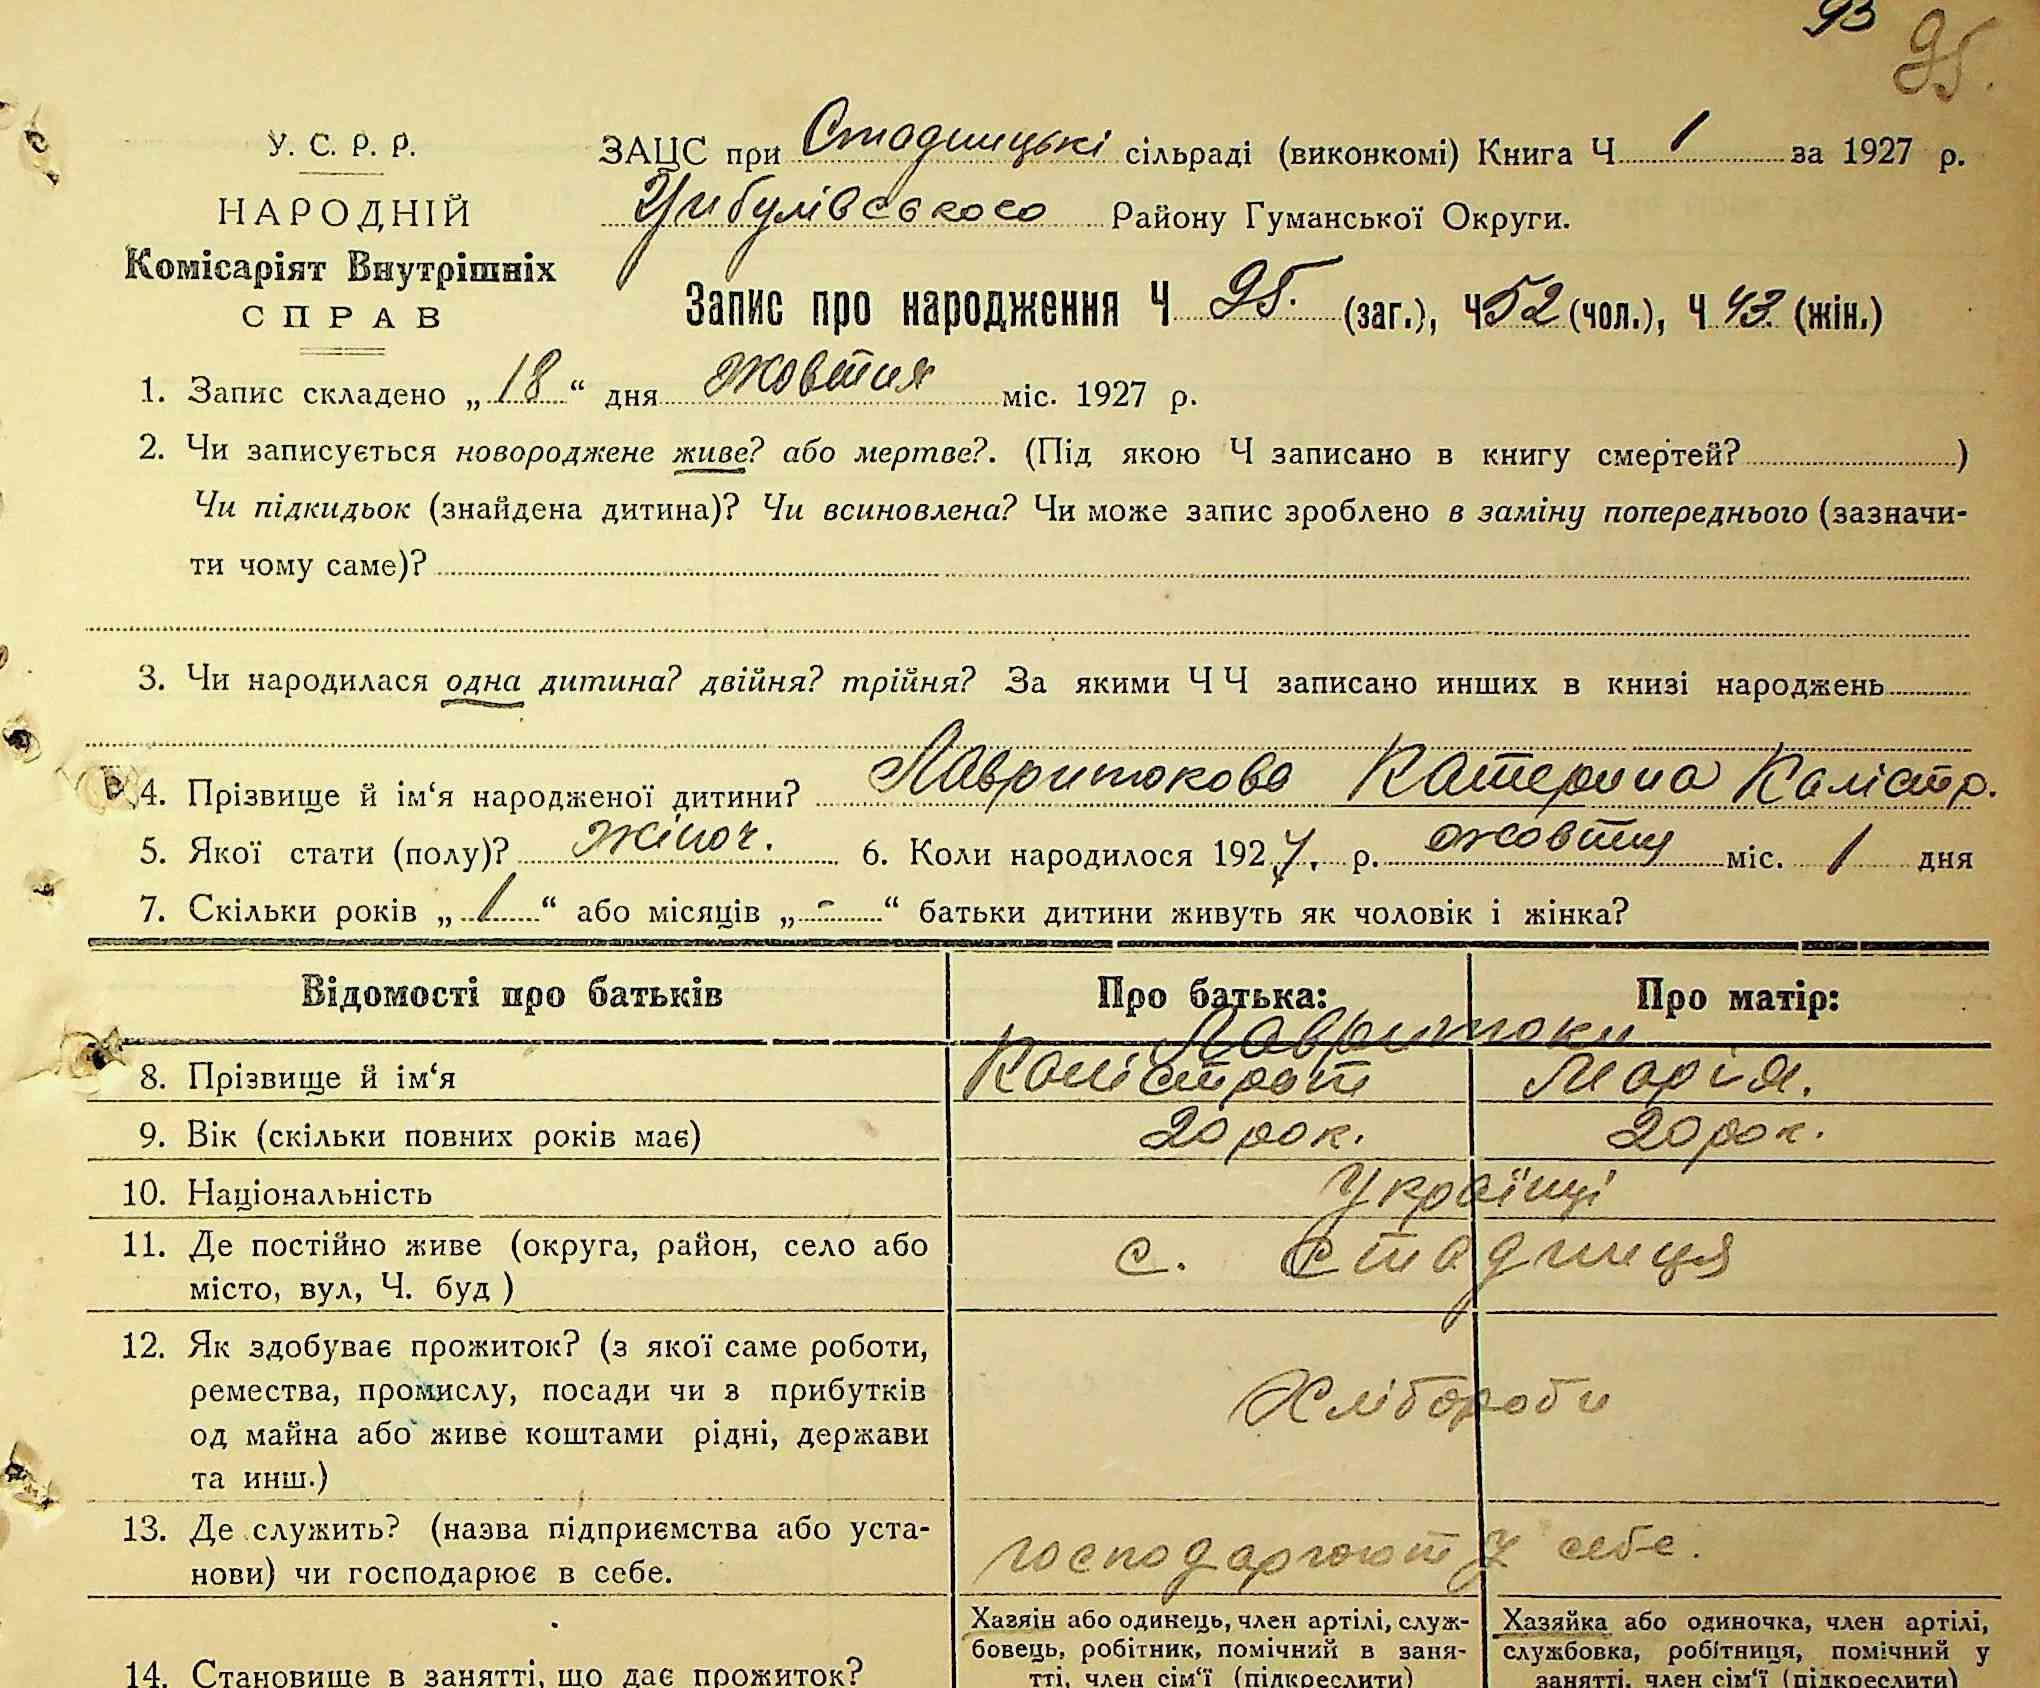 93
95.
У. С. Р. Р.
НАРОДНІЙ
Комісаріят Внутрішніх
СПРАВ
ЗАЦС при Стадницькі сільраді (виконкомі) Книга Ч 1 за 1927 р.
Цибулівського Району Гуманської Округи.
Запис про народження Ч 95. (заг.), Ч 52 (чол.), Ч 43. (жін.)
1. Запис складено „ 18 “ дня жовтня міс. 1927 р.
2. Чи записується новороджене живе? або мертве?. (Під якою Ч записано в книгу смертей? )
Чи підкидьок (знайдена дитина)? Чи всиновлена? Чи може запис зроблено в заміну попереднього (зазначи-
ти чому саме)?
3. Чи народилася одна дитина? двійня? трійня? За якими Ч Ч записано инших в книзі народжень
4. Прізвище й ім‘я народженої дитини? Лавритокова Катерина Калістр.
5. Якої стати (полу)? жіноч. 6. Коли народилося 1927. р. жовтня міс. 1 дня
7. Скільки років „ 1 “ або місяців „ - “ батьки дитини живуть як чоловік і жінка?
Відомості про батьків Про батька: Про матір:
Лавритоки
8. Прізвище й ім‘я Калістрат Марія.
9. Вік (скільки повних років має) 20 рок. 20 рок.
10. Національність Українці
11. Де постійно живе (округа, район, село або
місто, вул, Ч. буд ) с. Стадниця
12. Як здобуває прожиток? (з якої саме роботи,
ремества, промислу, посади чи з прибутків
од майна або живе коштами рідні, держави
та инш.) Хлібороби
13. Де служить? (назва підприємства або уста-
нови) чи господарює в себе. господарюют у себе.
14. Становище в занятті, що дає прожиток?
Хазяін або одинець, член артілі, служ-
бовець, робітник, помічний в заня-
тті, член сім‘ї (підкреслити)
Хазяйка або одиночка, член артілі,
службовка, робітниця, помічний у
занятті, член сім‘ї (підкреслити)